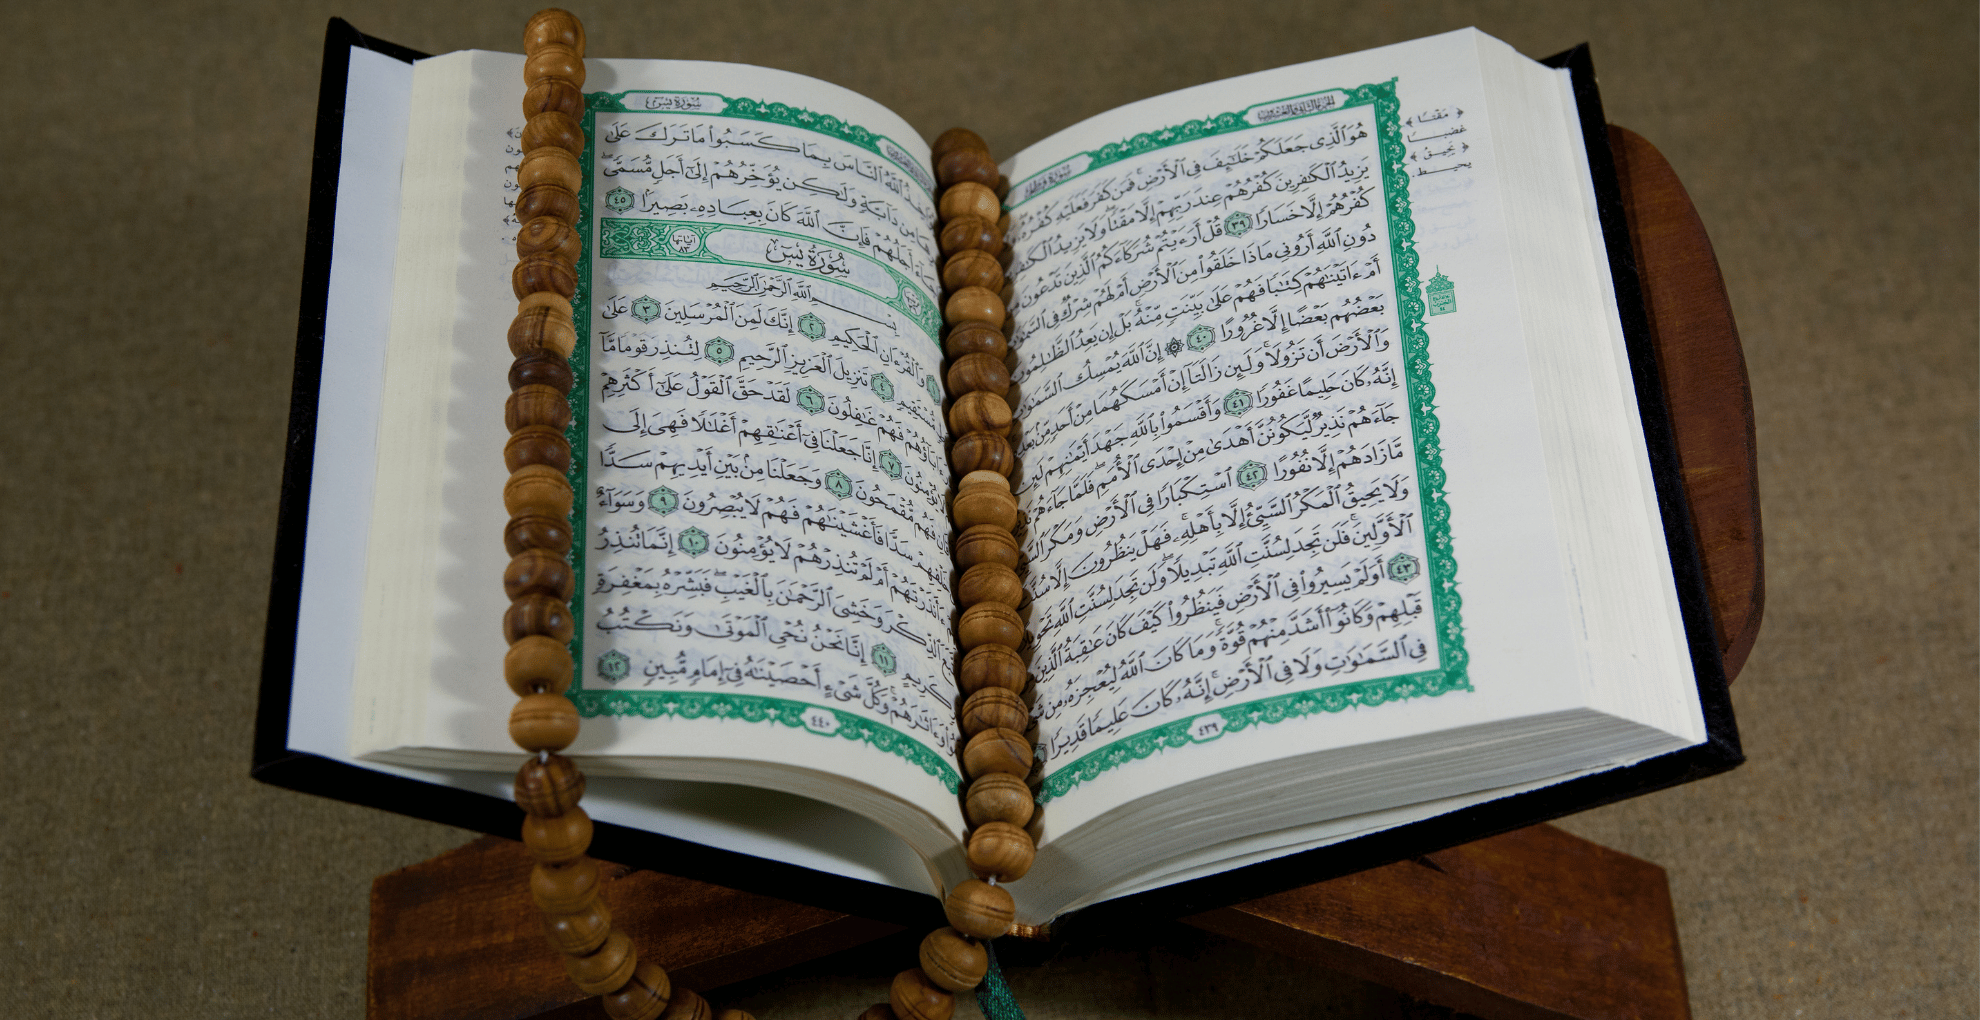 الجزء الثاني والعشرون
سُورَةُ فَاطِرٍ
هُوَ ٱلَّذِى جَعَلَكُمْ خَلَٰٓئِفَ فِى ٱلْأَرْضِ فَمَن كَفَرَ فَعَلَيْهِ كُفْرُهُۥ
يَزِيدُ ٱلْكَٰفِرِينَ كُفْرُهُمْ عِندَ رَبِّهِمْ إِلَّا مَقْتًا وَلَا يَزِيدُ
كُفْرُهُمْ إِلَّا خَسَارًا ٣٩ قُلْ أَرَءَيْتُمْ شُرَكَآءَكُمُ ٱلَّذِينَ تَدْعُونَ
دُونِ ٱللَّهِ أَرُونِى مَاذَا خَلَقُوا۟ مِنَ ٱلْأَرْضِ أَمْ لَهُمْ شِرْكٌ فِى
أَمْ ءَاتَيْنَٰهُمْ كِتَٰبًا فَهُمْ عَلَىٰ بَيِّنَتٍ مِّنْهُ ۚ بَلْ إِن يَعِدُ ٱلظَّٰلِمُونَ
بَعْضُهُم بَعْضًا إِلَّا غُرُورًا ٤٠ ۞ إِنَّ ٱللَّهَ يُمْسِكُ
وَٱلْأَرْضَ أَن تَزُولَا ۚ وَلَئِن زَالَتَآ إِنْ أَمْسَكَهُمَا مِنْ أَحَدٍ مِّنۢ
إِنَّهُۥ كَانَ حَلِيمًا غَفُورًا ٤١ وَأَقْسَمُوا۟ بِٱللَّهِ جَهْدَ أَيْمَٰنِهِمْ لَئِن
جَآءَهُمْ نَذِيرٌ لَّيَكُونُنَّ أَهْدَىٰ مِنْ إِحْدَى ٱلْأُمَمِ ۖ فَلَمَّا جَآءَهُمْ
مَّا زَادَهُمْ إِلَّا نُفُورًا ٤٢ ٱسْتِكْبَارًا فِى ٱلْأَرْضِ وَمَكْرَ
وَلَا يَحِيقُ ٱلْمَكْرُ ٱلسَّيِّئُ إِلَّا بِأَهْلِهِۦ ۚ فَهَلْ يَنظُرُونَ إِلَّا
ٱلْأَوَّلِينَ ۚ فَلَن تَجِدَ لِسُنَّتِ ٱللَّهِ تَبْدِيلًا ۖ وَلَن تَجِدَ لِسُنَّتِ ٱللَّهِ
٤٣ أَوَلَمْ يَسِيرُوا۟ فِى ٱلْأَرْضِ فَيَنظُرُوا۟ كَيْفَ كَانَ عَٰقِبَةُ ٱلَّذِينَ
قَبْلِهِمْ وَكَانُوٓا۟ أَشَدَّ مِنْهُمْ قُوَّةً ۚ وَمَا كَانَ ٱللَّهُ لِيُعْجِزَهُۥ مِن
فِى ٱلسَّمَٰوَٰتِ وَلَا فِى ٱلْأَرْضِ ۚ إِنَّهُۥ كَانَ عَلِيمًا قَدِيرًا
٤٣٩
﴿مَقْتًا﴾
غضبا
﴿يَحِيقُ﴾
يحيط
سُورَةُ يسٓ
ٱللَّهُ ٱلنَّاسَ بِمَا كَسَبُوا۟ مَا تَرَكَ عَلَىٰ
مِن دَآبَّةٍ وَلَٰكِن يُؤَخِّرُهُمْ إِلَىٰٓ أَجَلٍ مُّسَمًّى ۖ
أَجَلُهُمْ فَإِنَّ ٱللَّهَ كَانَ بِعِبَادِهِۦ بَصِيرًۢا ٤٥
سُورَةُ يسٓ
آياتها ٨٣
بِسْمِ ٱللَّهِ ٱلرَّحْمَٰنِ ٱلرَّحِيمِ
وَٱلْقُرْءَانِ ٱلْحَكِيمِ ٢ إِنَّكَ لَمِنَ ٱلْمُرْسَلِينَ ٣ عَلَىٰ
مُّسْتَقِيمٍ ٤ تَنزِيلَ ٱلْعَزِيزِ ٱلرَّحِيمِ ٥ لِتُنذِرَ قَوْمًا مَّآ
ءَابَآؤُهُمْ فَهُمْ غَٰفِلُونَ ٦ لَقَدْ حَقَّ ٱلْقَوْلُ عَلَىٰٓ أَكْثَرِهِمْ
لَا يُؤْمِنُونَ ٧ إِنَّا جَعَلْنَا فِىٓ أَعْنَٰقِهِمْ أَغْلَٰلًا فَهِىَ إِلَى
فَهُم مُّقْمَحُونَ ٨ وَجَعَلْنَا مِنۢ بَيْنِ أَيْدِيهِمْ سَدًّا
خَلْفِهِمْ سَدًّا فَأَغْشَيْنَٰهُمْ فَهُمْ لَا يُبْصِرُونَ ٩ وَسَوَآءٌ
ءَأَنذَرْتَهُمْ أَمْ لَمْ تُنذِرْهُمْ لَا يُؤْمِنُونَ ١٠ إِنَّمَا تُنذِرُ
ٱلذِّكْرَ وَخَشِىَ ٱلرَّحْمَٰنَ بِٱلْغَيْبِ ۖ فَبَشِّرْهُ بِمَغْفِرَةٍ
كَرِيمٍ ١١ إِنَّا نَحْنُ نُحْىِ ٱلْمَوْتَىٰ وَنَكْتُبُ
وَءَاثَٰرَهُمْ ۚ وَكُلَّ شَىْءٍ أَحْصَيْنَٰهُ فِىٓ إِمَامٍ مُّبِينٍ ١٢
٤٤٠